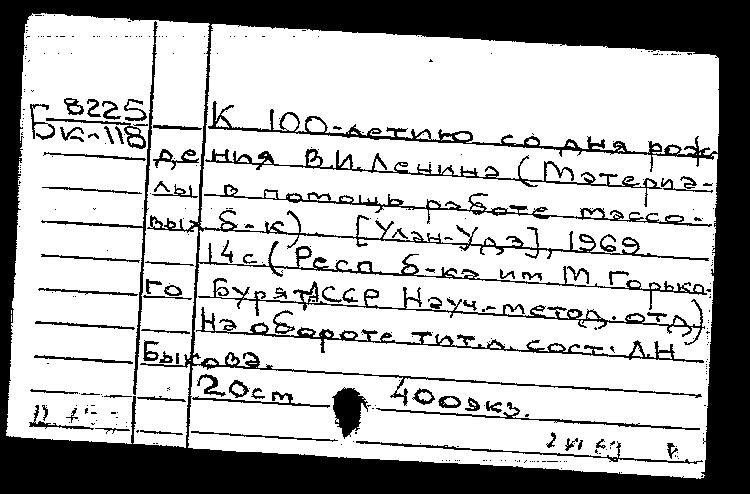 8225
Бк-118
К 100-летию со дня рож-
дения В.И.Ленина (Материа-
лы в помощь работе массо-
вых б-к). [Улан-Удэ], 1969.
14с (Респ б-ка им М.Горько-
го БурятАССР Науч.-метод.отд)
На обороте тит.л. сост. Л.Н
Быкова.
20см 400экз.